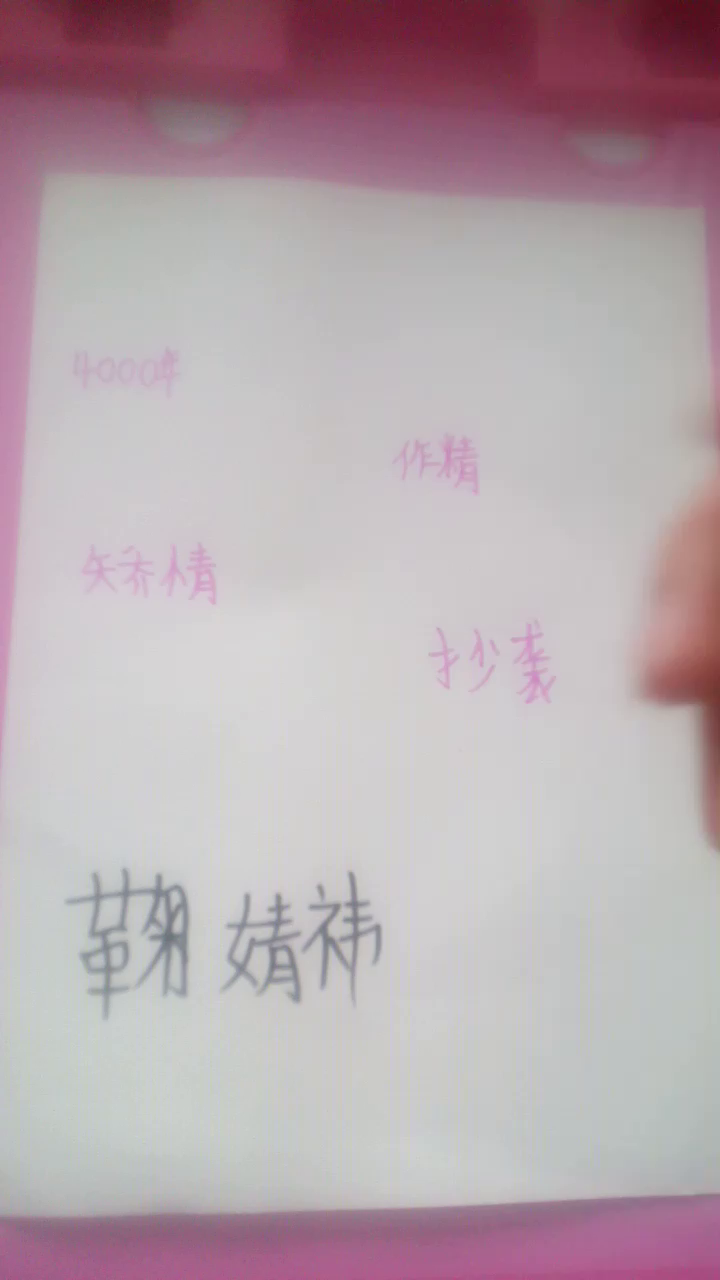 4000年
作精
矢乔情
抄袭
鞠婧祎